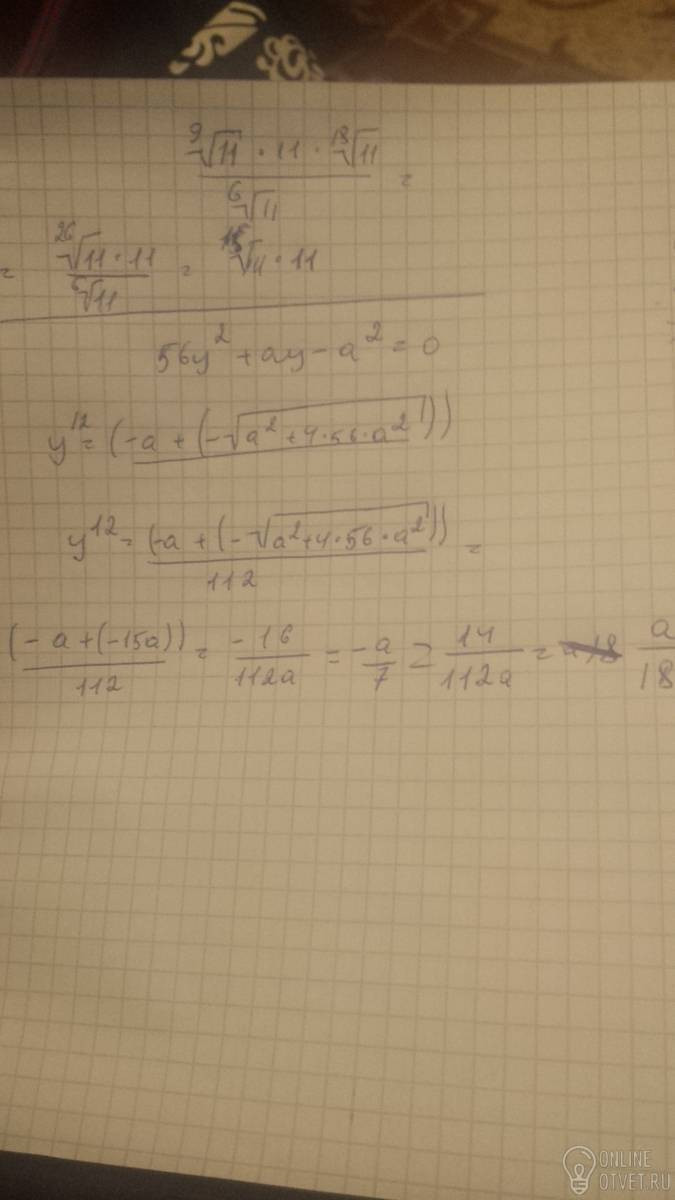 ⁹√11 · 11 · ¹⁸√11 / ⁶√11 =
= ²⁶√11 · 11 / ⁶√11 = √11 · 11
56y² + ay - a² = 0
y¹² = (-a + (-√a² + 4·56·a²))
y¹² = (-a + (-√a² + 4·56·a²)) / 112 =
(-a + (-15a)) / 112 = -16 / 112a = -a / 7 14 / 112a = a / 18
ONLINE
OTVET.RU